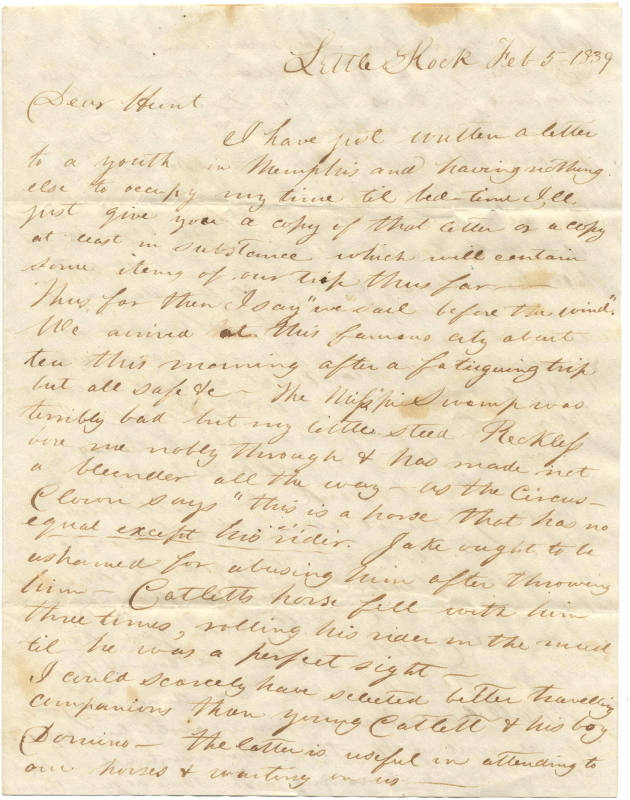 Little Rock Feb 5 - 1839
Dear Hunt
I have just written a letter
to a youth in Memphis and having nothing
else to occupy my time til bed-time I'll
just give you a copy of that letter or a copy
at least in substance which will contain
some items of our trip thus far —
Thus far then I say "we sail before the wind".
We arrived at this famous city about
ten this morning after a fatiguing trip
but all safe &c — The Missppi Swamp was
terribly bad but my little steed Reckless
bore me nobly through & has made not
a blunder all the way — as the Circus-
Clown says "this is a horse that has no
equal except his rider." Jake ought to be
ashamed for abusing him after throwing
him — Catletts horse fell with him
three times, rolling his rider in the mud
til he was a perfect sight —
I could scarcely have selected better travelling
companions than young Catlett & his boy
Domino — the latter is useful in attending to
our horses & waiting on us —